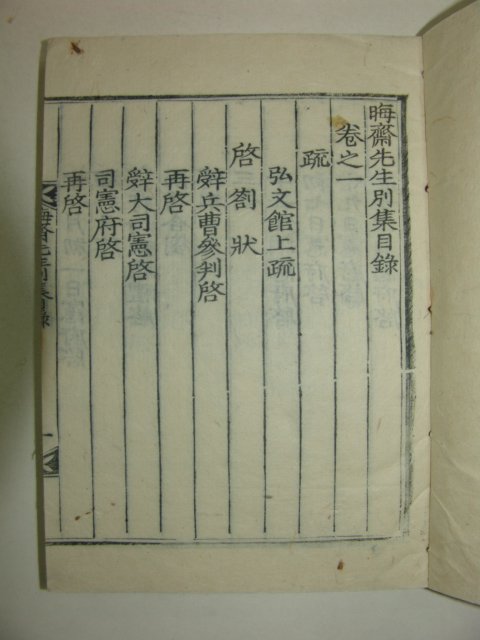 晦齋先生別集目錄
卷之一
疏
弘文館上疏
啓劄狀
辭兵曹參判啓
再啓
辭大司憲啓
司憲府啓
再啓
晦齋先生別集目錄
一